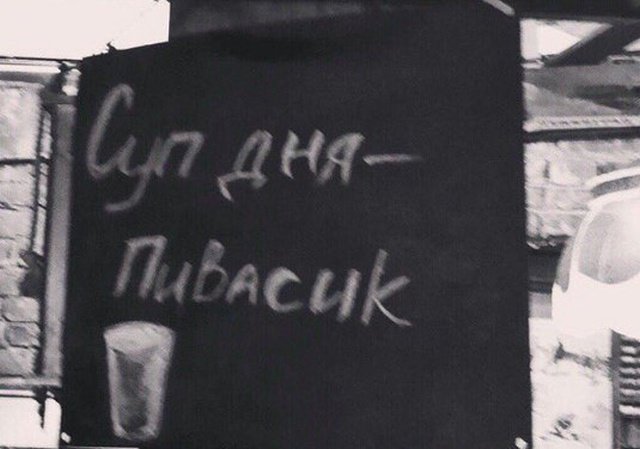 Суп дня -
Пивасик